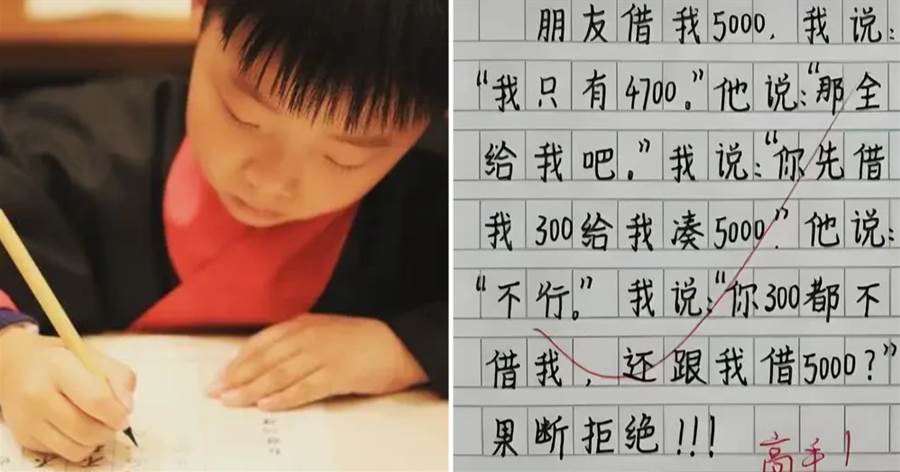 朋友借我5000，我说：
“我只有4700。”他说：“那全
给我吧。”我说：“你先借
我300给我凑5000”他说：
“不行。”我说：“你300都不
借我，还跟我借5000？”
果断拒绝!!!
高手！